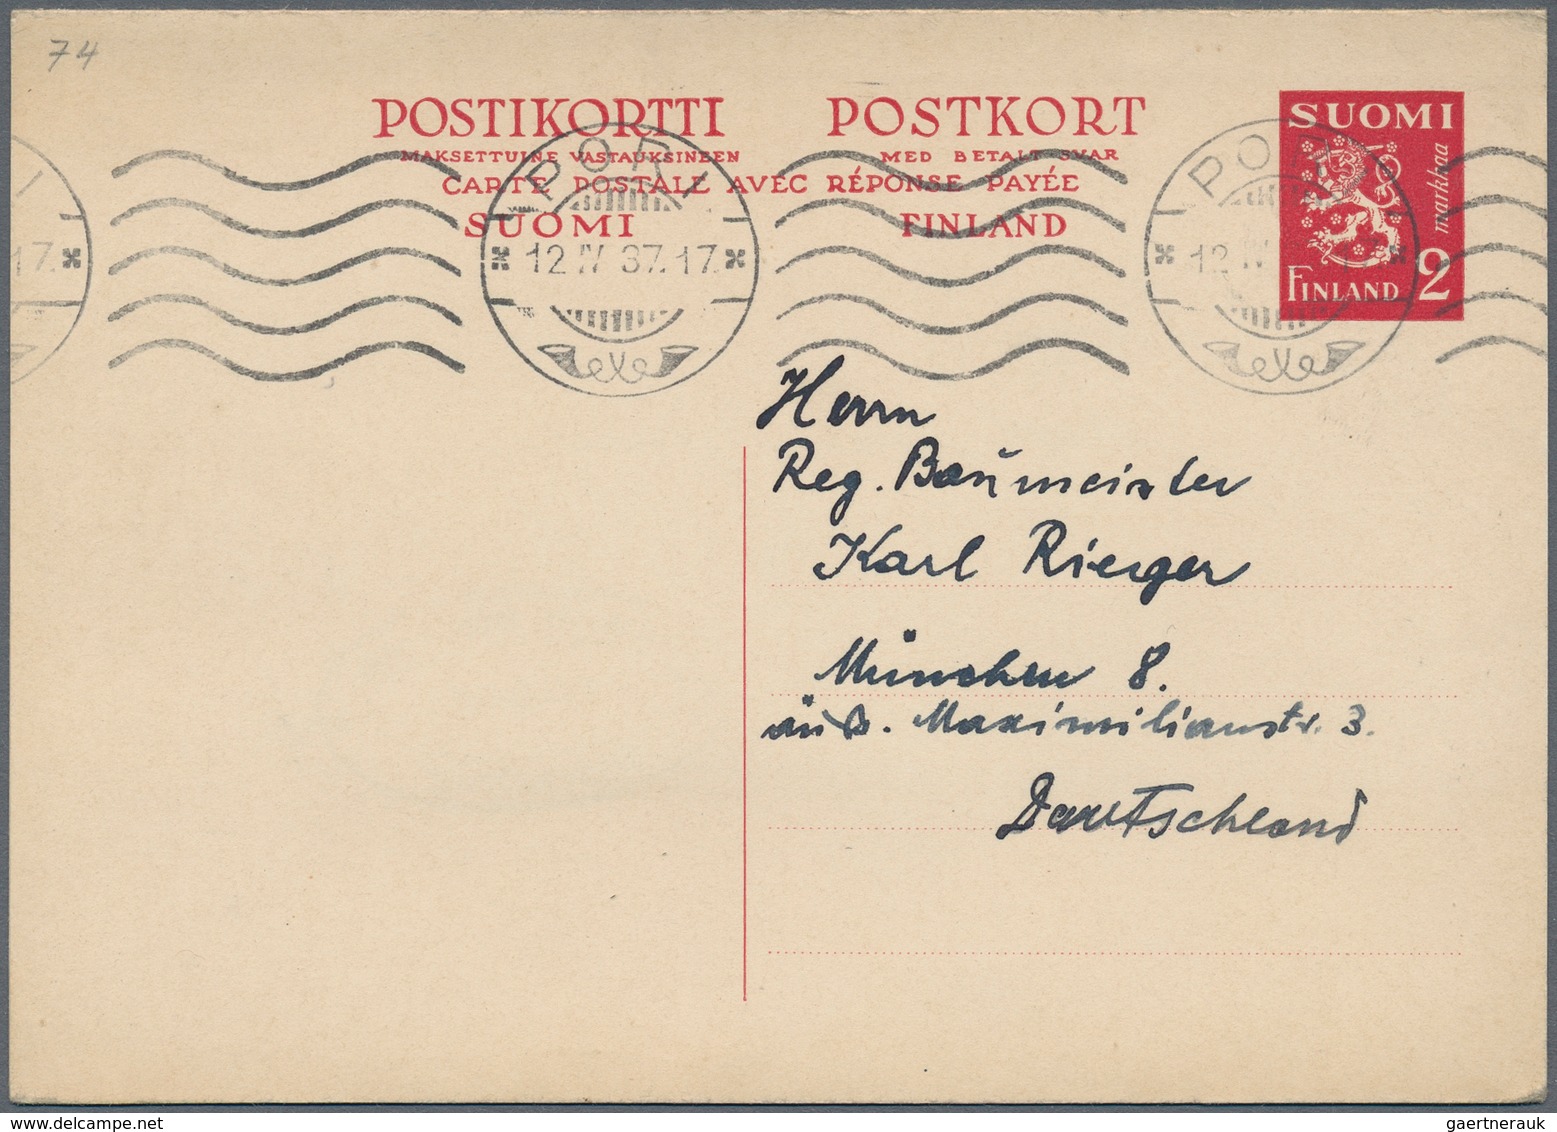 74
POSTIKORTTI POSTKORT
MAKSETTUINE VASTAUKSINEEN MED BETALT SVAR
CARTE POSTALE AVEC RÉPONSE PAYÉE
SUOMI FINLAND
SUOMI
markkaa
FINLAND 2
PORI
12 IV 37.17.
PORI
12 IV
I
17.
Herrn
Reg. Baumeister
Karl Rieger
München 8.
äuß. Maximilianstr. 3.
Deutschland
gaertnerauk
delcampe.net